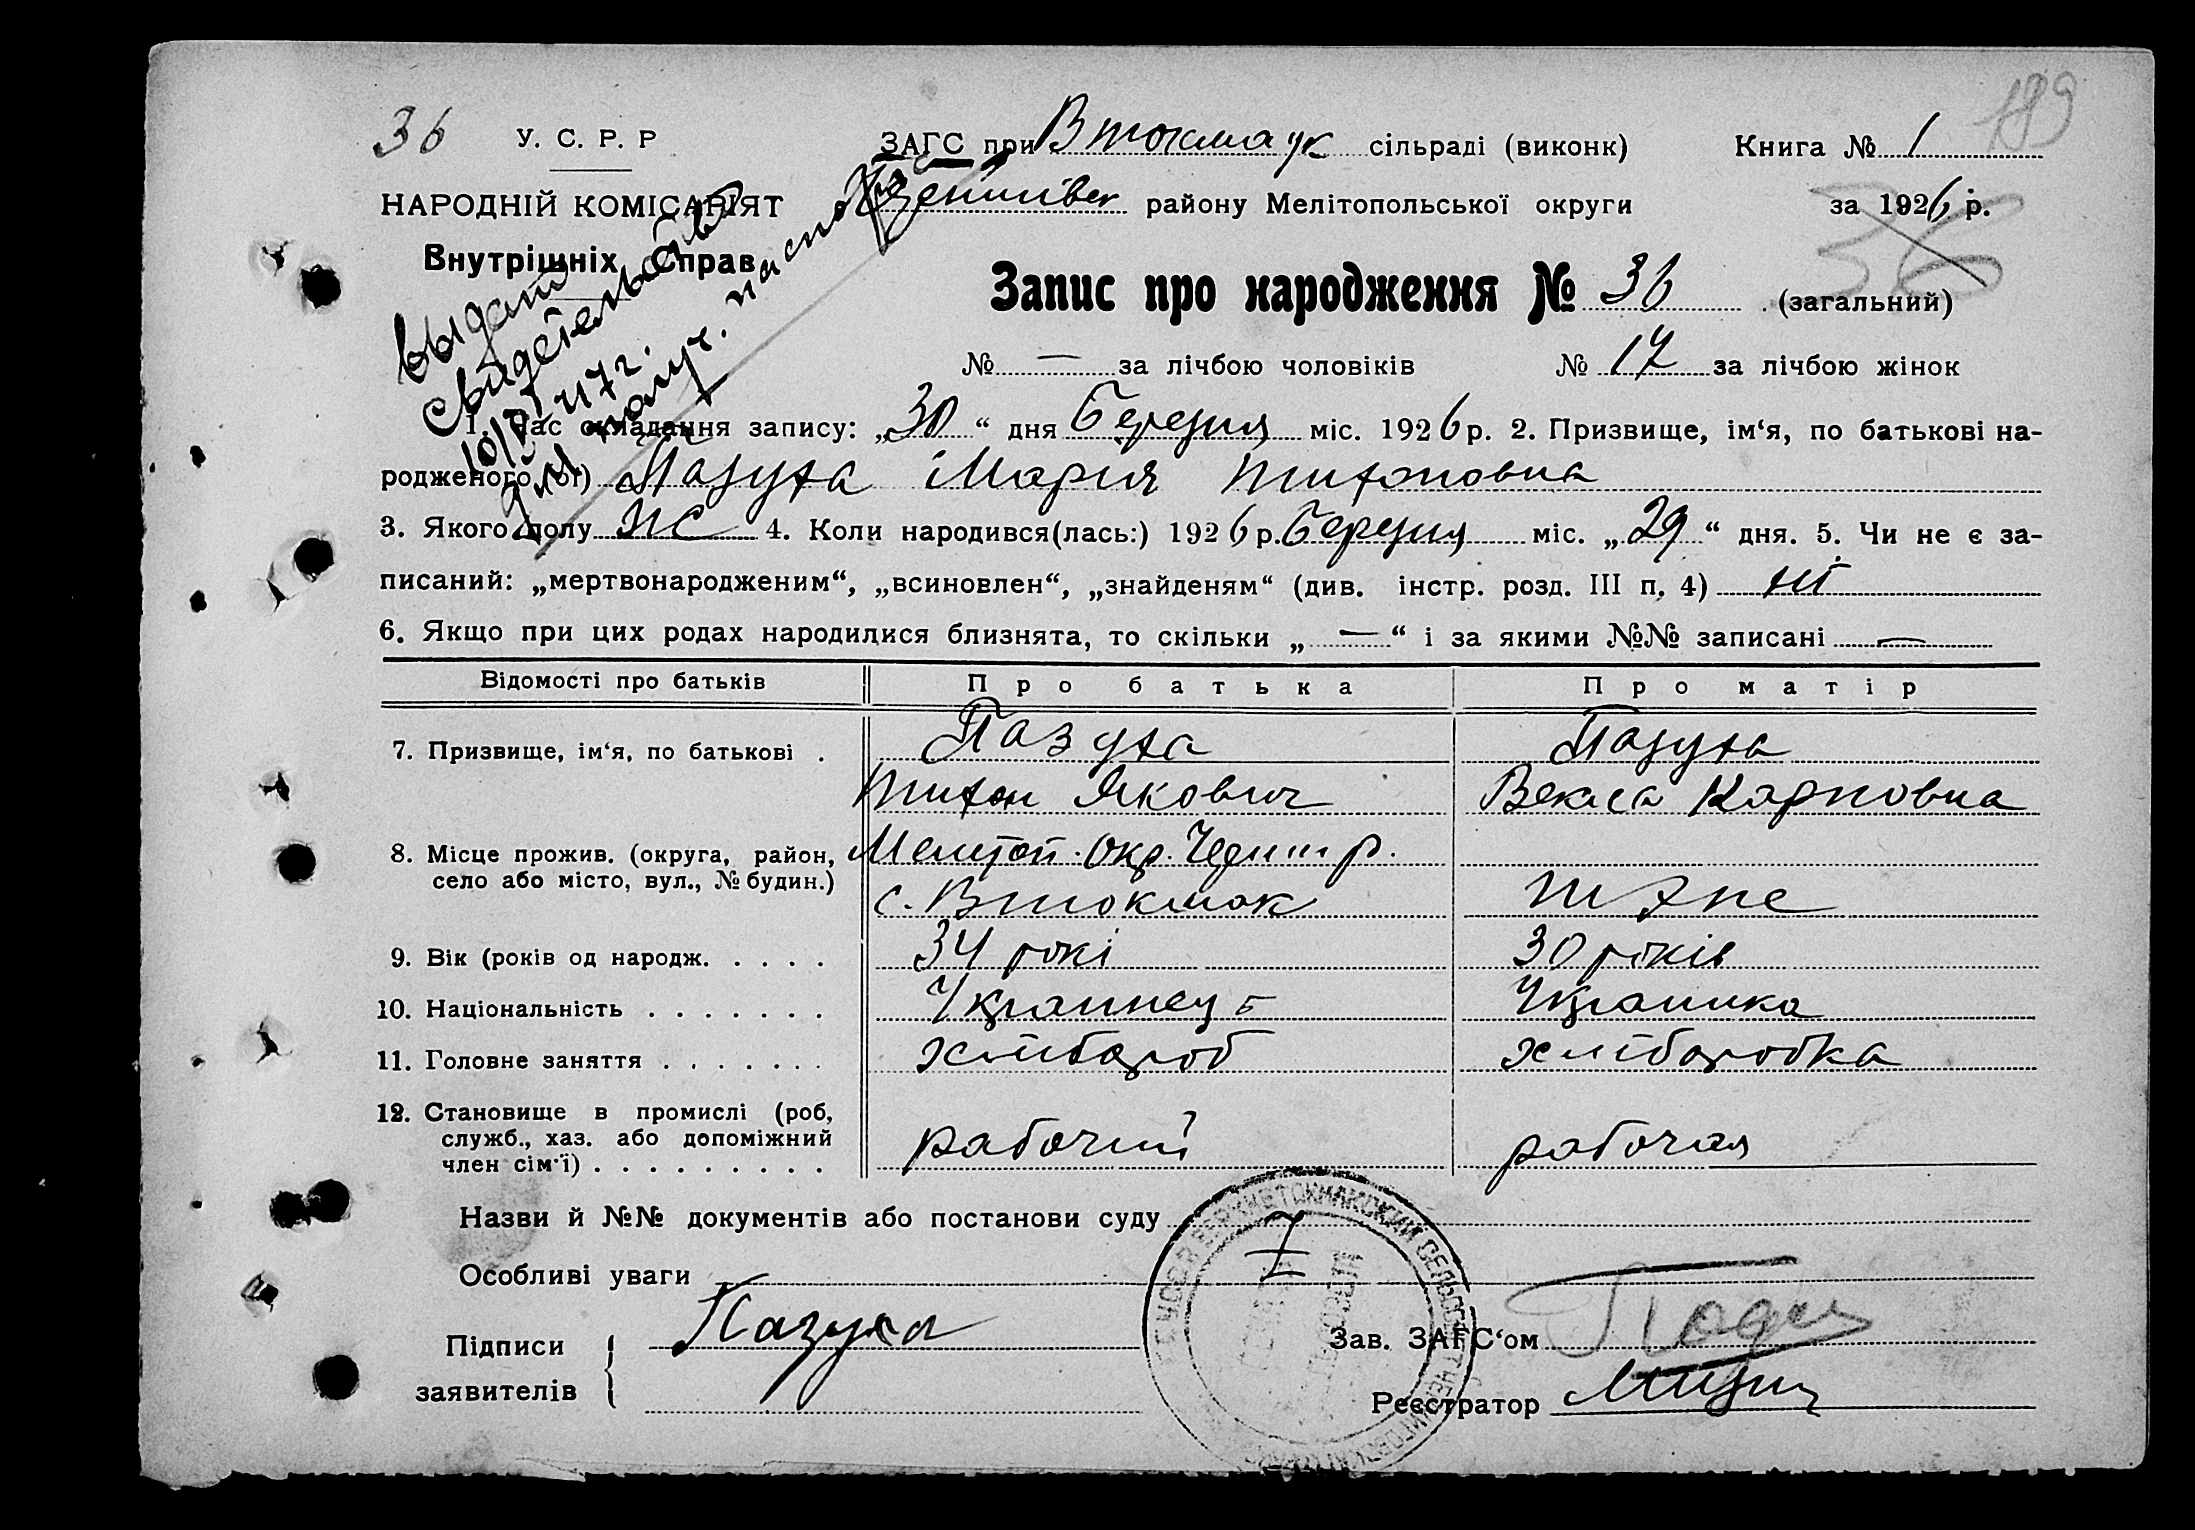 36 У. С. Р. Р ЗАГС при В Токмацк сільраді (виконк) Книга № 1 189
НАРОДНІЙ КОМІСАРІЯТ районy Мелітопольської округи за 1926 р.
Внутрішніх Справ 36
Запис про народження № 36 (загальний)
№ — за лічбою чоловіків № 17 за лічбою жінок
Выдано
свидетельство
10/ 47 г.
для получ. паспорта
1. Час складання запису: „30“ дня Березня міс. 1926 р. 2. Призвище, ім‘я, по батькові на-
родженого (ої) Пазуха Мария Тихоновна
3. Якого полу ж 4. Коли народився(лась:) 1926 р. Березня міс. „29“ дня. 5. Чи не є за-
писаний: „мертвонародженим“, „всиновлен“, „знайденям“ (див. інстр. розд. III п, 4) ні
6. Якщо при цих родах народилися близнята, то скільки „ — “ і за якими №№ записані —
Відомості про батьків Про батька Про матір
7. Призвище, ім‘я, по батькові . Пазуха Пазуха
Тихон Якович Векла Карповна
8. Місце прожив. (округа, район, Меліточ. Окр. Черниг р.
село або місто, вул., № будин.) с. В Токмак тяже
9. Вік (років од народж. . . . . 34 рокі 30 років
10. Національність . . . . . . . Українець Українка
11. Головне заняття . . . . . . . хлібороб хліборобка
12. Становище в промислі (роб,
служб., хаз. або допоміжний рабочий рабочая
член сім‘ї) . . . . . . . . .
Назви й №№ документів або постанови суду
Особливі уваги
Підписи Пазуха Зав. ЗАГС‘ом
заявителів
Реєстратор